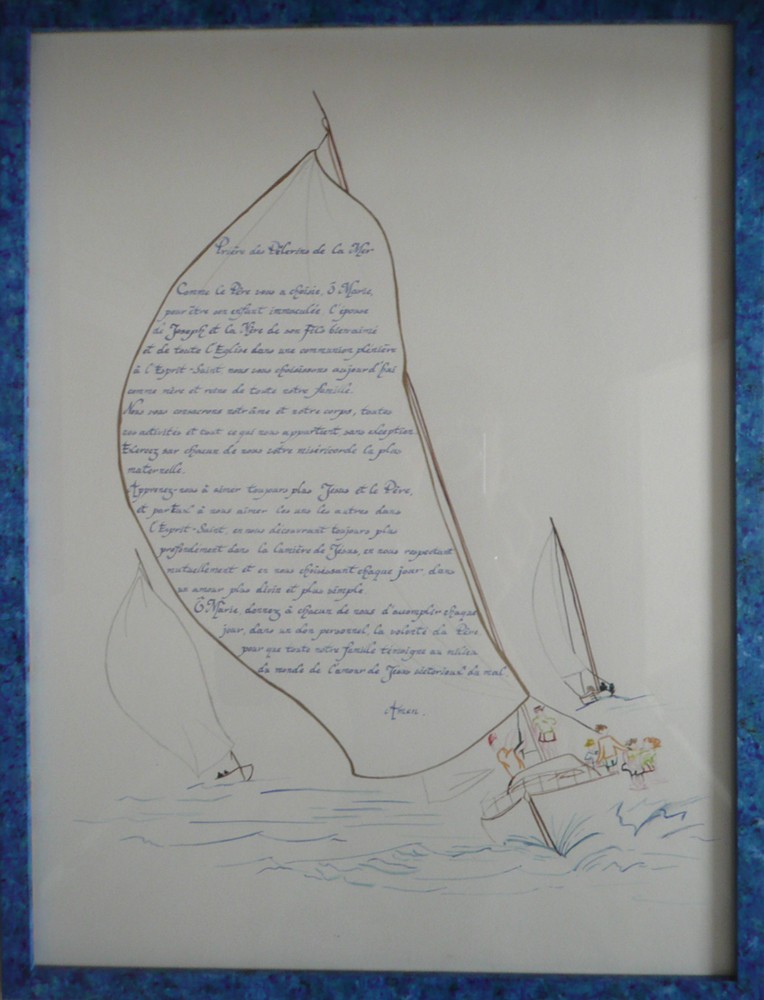 Prière des Pèlerins de la Mer
Comme le Père vous a choisie, Ô Marie,
pour être son enfant immaculée l'épouse
de Joseph et la Mère de son Fils bienaimé
et de toute l'Eglise dans une communion plénière
à l'Esprit-Saint, nous vous choisissons aujourd'hui
comme mère et reine de toute notre famille.
Nous vous consacrons notre âme et notre corps, toutes
nos activités et tout ce qui nous appartient sans exception.
Exercez sur chacun de nous votre miséricorde la plus
maternelle.
Apprenez-nous à aimer toujours plus Jésus et le Père,
et par Eux à nous aimer les uns les autres dans
l'Esprit-Saint, en nous découvrant toujours plus
profondément dans la lumière de Jésus, en nous respectant
mutuellement et en nous choisissant chaque jour, dans
un amour plus divin et plus simple.
Ô Marie, donnez à chacun de nous d'accomplir chaque
jour, dans un don personnel, la volonté du Père,
pour que toute notre famille témoigne au milieu
du monde de l'amour de Jésus victorieux du mal.
Amen.